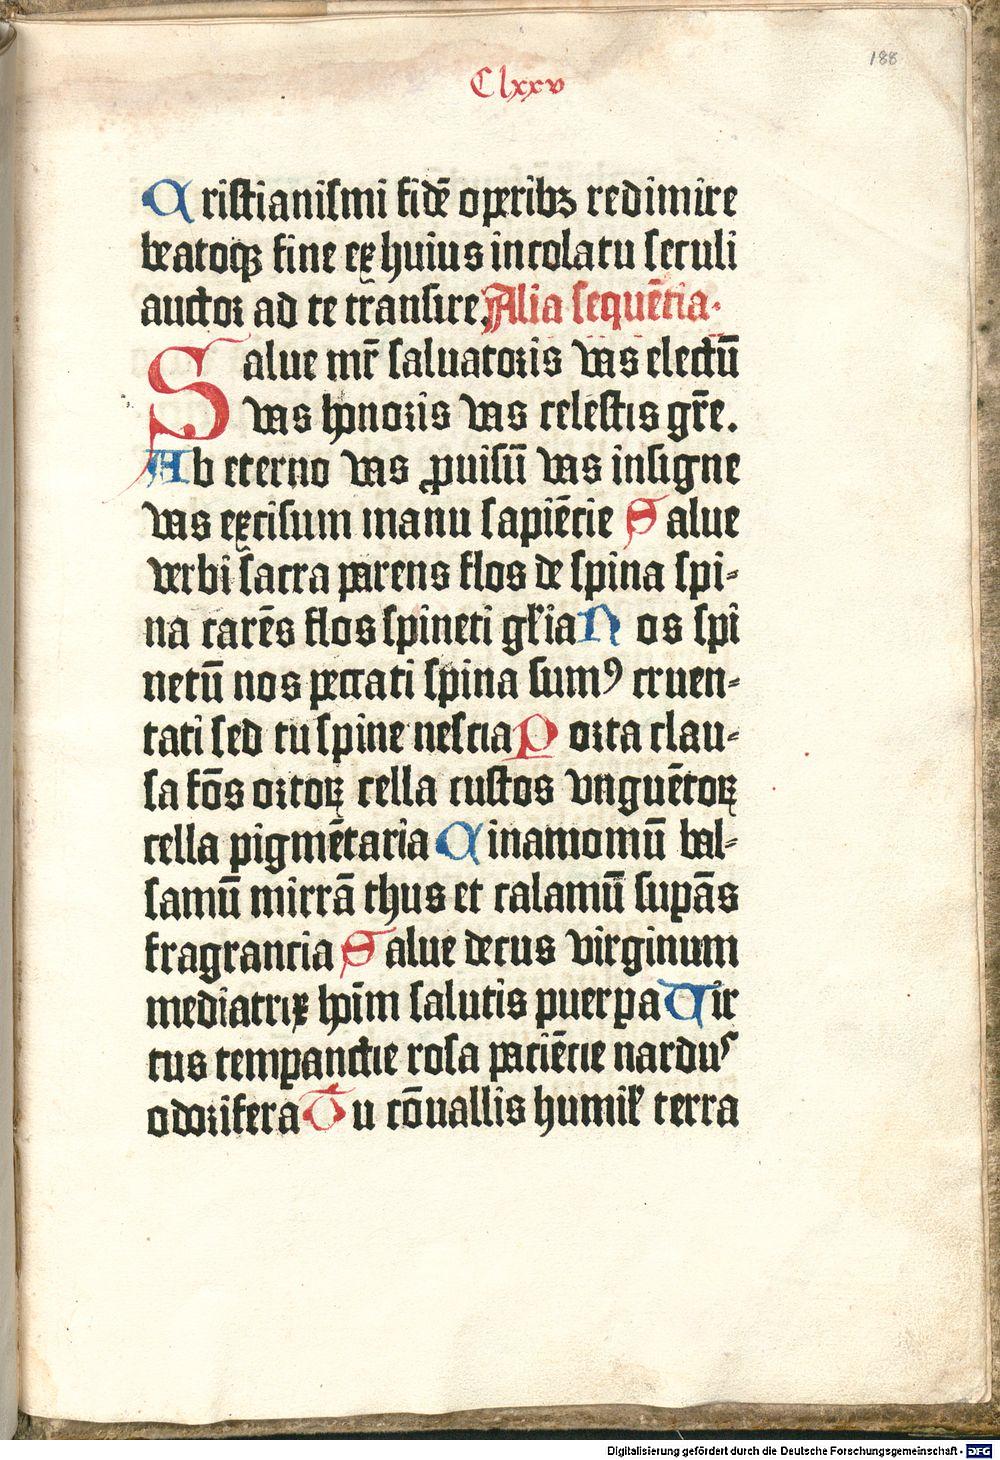 188
Clxxv
Cristianismi fidē operibꝫ redimire
beatoqꝫ fine ex huius incolatu seculi
auctor ad te transire. Alia sequētia.
Salue mr̄ saluatoris vas electū
vas honoris vas celestis gr̄e.
Ab eterno vas ꝓuisū vas insigne
vas excisum manu sapiḗcie Salue
verbi sacra parens flos de spina spi⸗
na carēs flos spineti gl̓ia Nos spi
netū nos peccati spina sumꝰ cruen⸗
tati sed tu spine nescia Porta clau⸗
sa fōs ortoꝝ cella custos vnguētoꝝ
cella pigmētaria Cinamomū bal⸗
samū mirrā thus et calamū suꝑās
fragrancia Salue decus virginum
mediatrix hoīm salutis puerꝑa Mir
tus temꝑanctie rosa paciēcie nardus
odorifera Tu cōuallis humil̓ terra
Digitalisierung gefördert durch die Deutsche Forschungsgemeinschaft - DFG